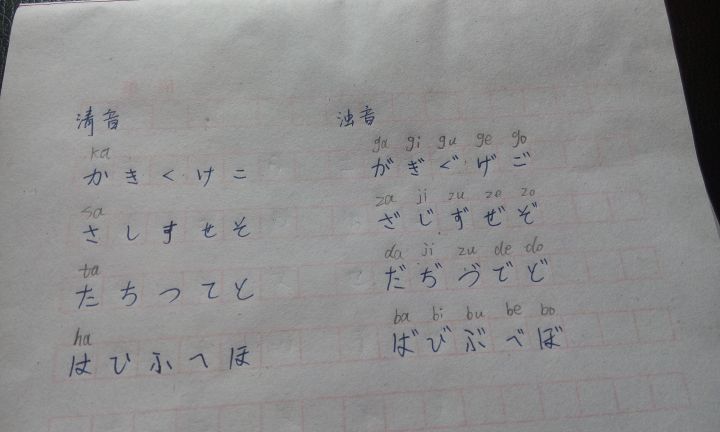 清音 浊音
ka ga gi gu ge go
かきくけこ がぎぐげご
sa za ji zu ze zo
さしすせそ ざじずぜぞ
ta da ji zu de do
たちつてと だぢづでど
ha ba bi bu be bo
はひふへほ ばびぶべぼ